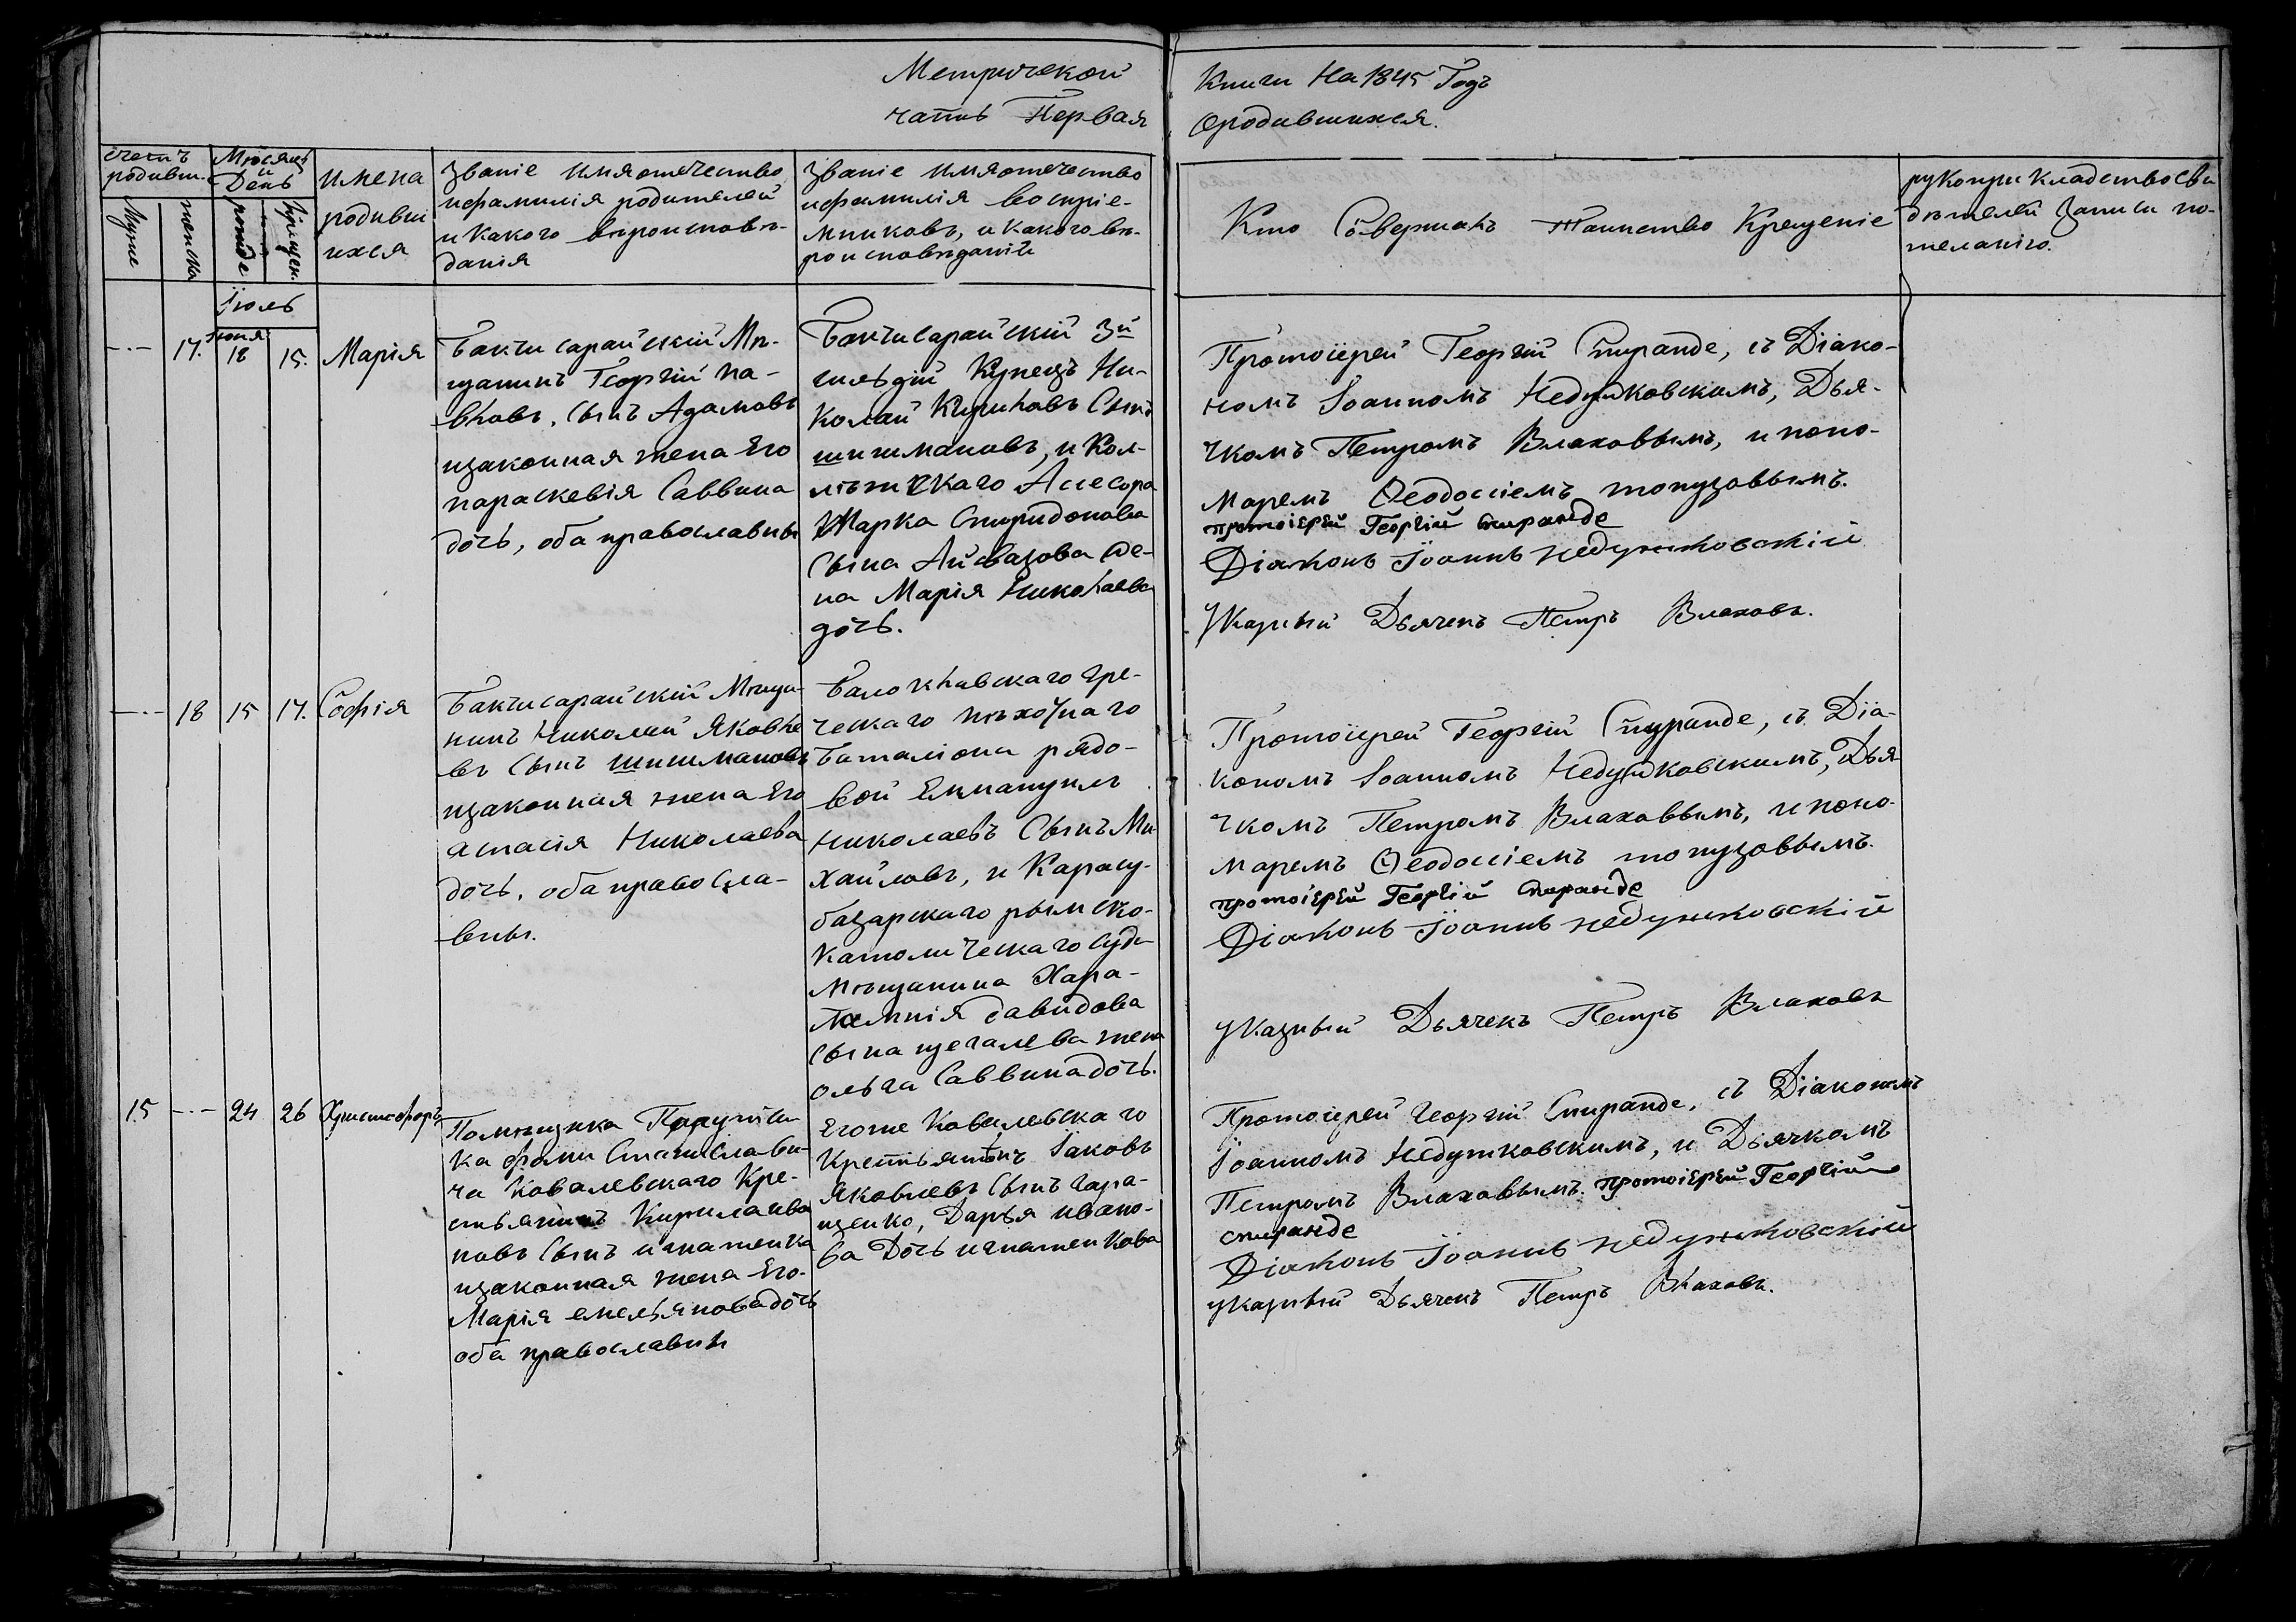 Метрической
часть Первая
Книги на 1845 Годъ
Ородившихся.
счетъ родивш.
Мужс
женска
Мѣсяцъ и День
рожде
крещен.
имена
родивши
ихся
Званіе имяотечество
ифамилія родителей
и какого вѣроисповѣ-
данія
Званіе имяотечество
ифамилія воспріе-
мниковъ, и какого вѣ-
роисповѣданія
Кто Совершалъ Таинство Крещеніе
рукоприкладство сви
дѣтелей записи по-
желанію.
Іюль
—·— 17. Іюня 18 15. Марія
Бахчисарайскій Мѣ-
щанинъ Георгій Па-
вловъ, Сынъ Адамовъ
изаконная жена Его
параскевія Саввина
дочь, оба православны
Бахчисарайскій 3й
гильдій Купецъ Ни-
колай Куриловъ Сынъ
шишмановъ, и Кол-
лѣжскаго Асесора
Марка Спиридонова
Сына Айвазова же-
на Марія Николаева
дочь.
Протоіерей Георгій Спиранде, съ Діако-
номъ Іоанномъ Недужковскимъ, Дья-
чкомъ Петромъ Влаховымъ, и поно-
маремъ Ѳеодосіемъ топузовымъ.
протоіерей Георгій Спиранде
Діаконъ Іоаннъ недужковскій
Указный Дьячекъ Петръ Влаховъ.
—·— 18 15 17. Софія
Бахчисарайскій Мѣща-
нинъ Николай Яковле
въ Сынъ шишмановъ
изаконная жена Его
Николаева
дочь, оба правосла-
вны.
Балоклавскаго Гре-
ческаго пѣхотнаго
Баталіона рядо-
вой Еммануилъ
Николаевъ Сынъ Ми-
хайловъ, и Карасу-
базарскаго рымско-
католическаго суда
мѣщанина Хара-
лампія давидова
Сына щегалева жена
ольга Саввина дочь.
Протоіерей Георгій Спуранде, съ Діа-
кономъ Іоанномъ Недужковскимъ, Дья
чкомъ Петромъ Влаховымъ, и поно-
маремъ Ѳеодосіемъ топузовымъ.
протоіерей Георгій Спиранде
Діаконъ Іоаннъ недужковскій
указный Дьячекъ Петръ Влаховъ
15 —·— 24 26 Христофоръ
Помѣщика
Станислави-
ча Ковалевскаго Кре-
стьянинъ Кирила ива
новъ Сынъ игнатенка
изаконная жена Его
Марія емельянова дочь
оба православны
Егоже Ковалевскаго
Крестьянинъ Іаковъ
Яковлевъ Сынъ Гара-
щенко, Дарья ивано-
ва Дочь игнатенкова
Протоіерей Георгій Спиранде, съ Діакономъ
Іоанномъ Недужковскимъ, и Дьячкомъ
Петромъ Влаховымъ. протоіерей Георгій
спиранде
Діаконъ Іоаннъ недужковскій
указный Дьячекъ Петръ Влаховъ.